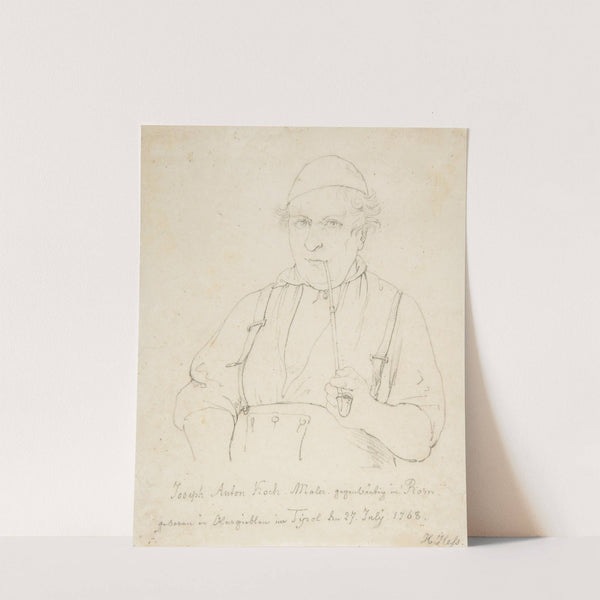 Joseph Anton Koch Maler gegenwärtig in Rom
geboren in Obergieblen im Tÿrol den 27. July 1768.
H. Heſs.